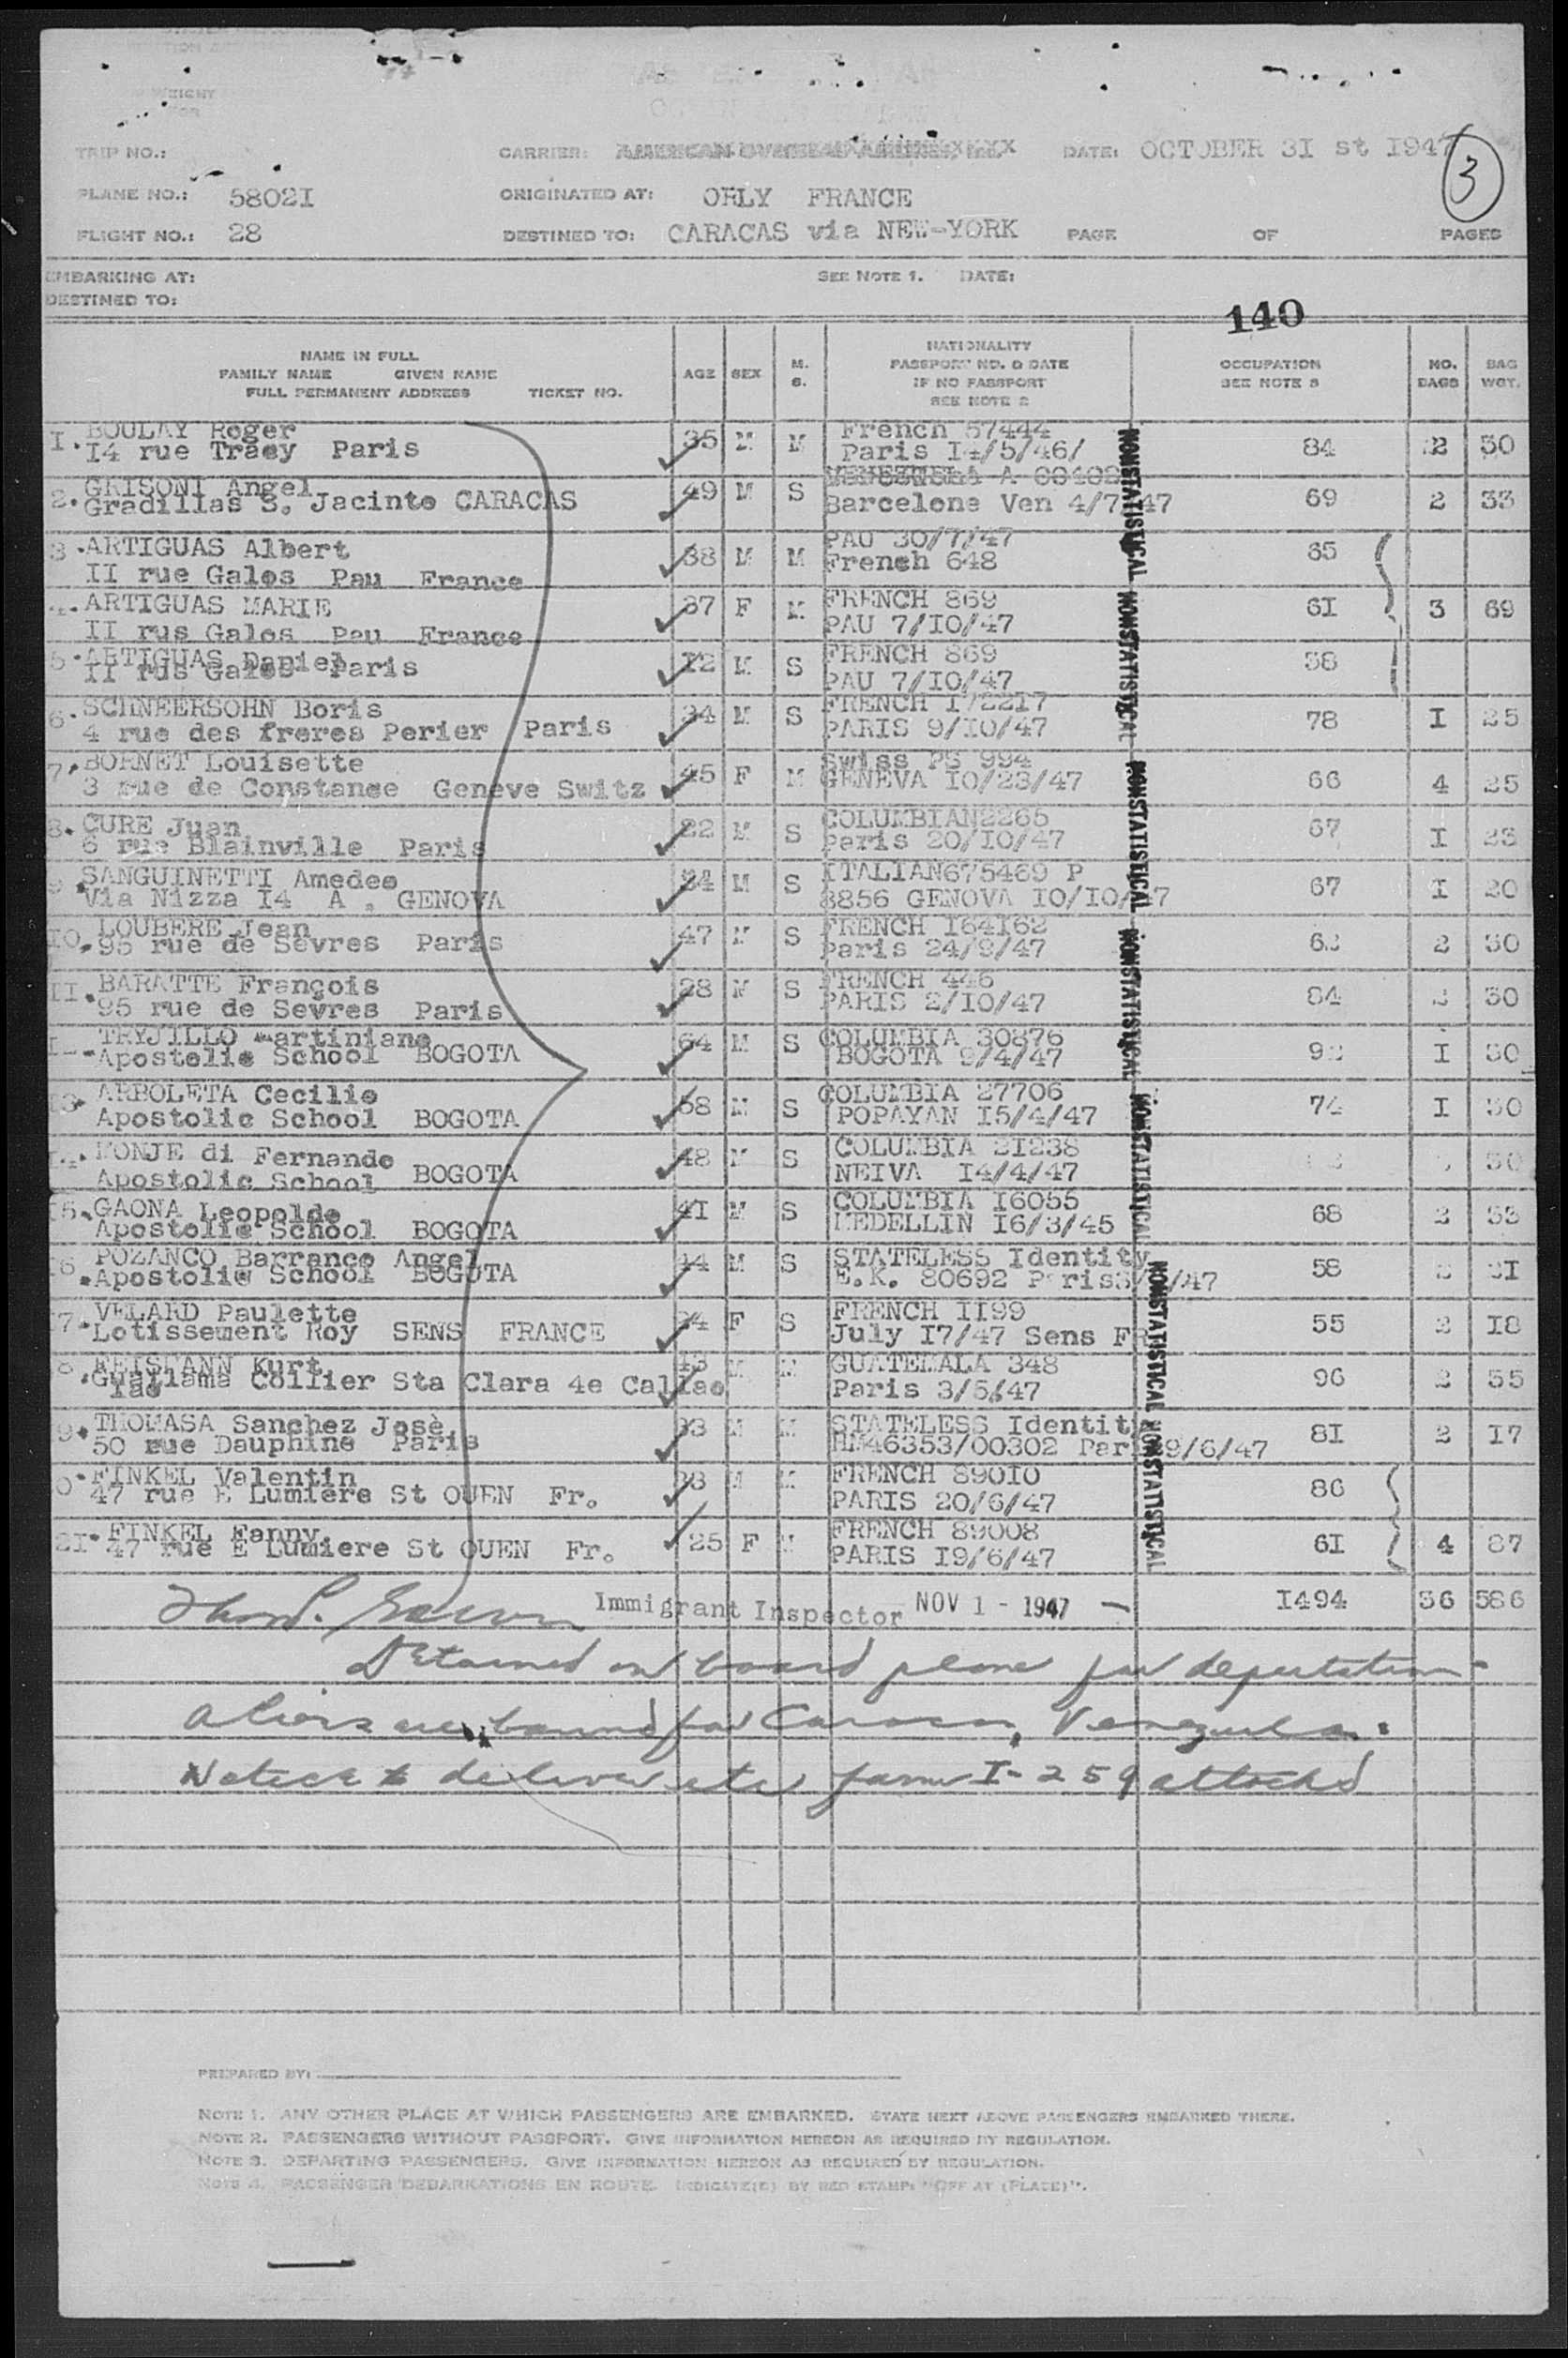 TRIP NO.:
CARRIER: AMERICAN OVERSEAS AIRLINES, INC.
DATE: OCTOBER 3I st I947
3
PLANE NO.: 5802I
ORIGINATED AT: ORLY FRANCE
FLIGHT NO.: 28
DESTINED TO: CARACAS via NEW-YORK
PAGE OF PAGES
EMBARKING AT:
SEE NOTE 1. DATE:
DESTINED TO:
140
NAME IN FULL
FAMILY NAME GIVEN NAME
FULL PERMANENT ADDRESS TICKET NO.
AGE SEX M. S.
NATIONALITY
PASSPORT NO. & DATE
IF NO PASSPORT
SEE NOTE 2
OCCUPATION
SEE NOTE 3
NO. BAGS
BAG WGT.
I. BOULAY Roger 35 M M French 57444 84 2 30
I4 rue Tracy Paris Paris I4/5/46/
2. GRISONI Angel 49 M S VENEZUELA A 00408 69 2 33
Gradillas S. Jacinto CARACAS Barcelone Ven 4/7/47
3. ARTIGUAS Albert 38 M M PAU 30/7/47 65
II rue Galos Pau France French 648
4. ARTIGUAS MARIE 37 F M FRENCH 869 6I 3 69
II rus Galos Pau France PAU 7/I0/47
5. ARTIGUAS Daniel I2 M S FRENCH 869 38
II rus Galos Paris PAU 7/I0/47
6. SCHNEERSOHN Boris 34 M S FRENCH I72217 78 I 25
4 rue des freres Perier Paris PARIS 9/I0/47
7. BORNET Louisette 45 F M Swiss PS 994 66 4 25
3 rue de Constance Geneve Switz GENEVA IO/23/47
8. CURE Juan 22 M S COLUMBIAN2265 67 I 23
6 rue Blainville Paris Paris 20/IO/47
9. SANGUINETTI Amedeo 24 M S ITALIAN675469 P 67 I 20
Via Nizza I4 A . GENOVA 8856 GENOVA IO/IO/47
IO. LOUBERE Jean 47 M S FRENCH I64I62 2 30
95 rue de Sevres Paris Paris 24/9/47
II. BARATTE François 28 M S FRENCH 446 84 30
95 rue de Sevres Paris PARIS 2/IO/47
TRYJILLO Martiniano 64 M S COLUMBIA 30876 I 30
Apostolic School BOGOTA BOGOTA 9/4/47
ARBOLETA Cecilio 58 M S COLUMBIA 27706 74 I 30
Apostolic School BOGOTA POPAYAN I5/4/47
MONJE di Fernando 48 M S COLUMBIA 2I238 30
Apostolic School BOGOTA NEIVA I4/4/47
I5. GAONA Leopolde 4I M S COLUMBIA I6055 68 2 33
Apostolic School BOGOTA MEDELLIN I6/3/45
POZANCO Barranco Angel 44 M S STATELESS Identity 58
Apostolic School BOGOTA E.K. 80692 Paris
7. VELARD Paulette 24 F S FRENCH II99 55 2 I8
Lotissement Roy SENS FRANCE July I7/47 Sens FR
8. Kurt 43 M M GUATEMALA 348 96 2 55
Collier Sta Clara 4e Callao Paris 3/5/47
9. THOMASA Sanchez Josè 33 M M STATELESS Identity 8I 2 I7
50 rue Dauphine Paris 46353/00302 Par 9/6/47
0. FINKEL Valentin 38 M M FRENCH 890I0 86
47 rue E Lumiere St OUEN Fr. PARIS 20/6/47
2I. FINKEL Fanny 25 F M FRENCH 89008 6I 4 87
47 rue E Lumiere St OUEN Fr. PARIS I9/6/47
NONSTATISTICAL NONSTATISTICAL NONSTATISTICAL NONSTATISTICAL NONSTATISTICAL NONSTATISTICAL NONSTATISTICAL
Immigrant Inspector NOV 1 - 1947 I494 36 586
Detained on board plane for deportation
Aliens are bound for Caracas, Venezuela.
Notice to deliver etc form I-259 attached
PREPARED BY:
NOTE 1. ANY OTHER PLACE AT WHICH PASSENGERS ARE EMBARKED. STATE NEXT ABOVE PASSENGERS EMBARKED THERE.
NOTE 2. PASSENGERS WITHOUT PASSPORT. GIVE INFORMATION HEREON AS REQUIRED BY REGULATION.
NOTE 3. DEPARTING PASSENGERS. GIVE INFORMATION HEREON AS REQUIRED BY REGULATION.
NOTE 4. PASSENGER DEBARKATIONS EN ROUTE. INDICATE(D) BY RED STAMP: "OFF AT (PLACE)".